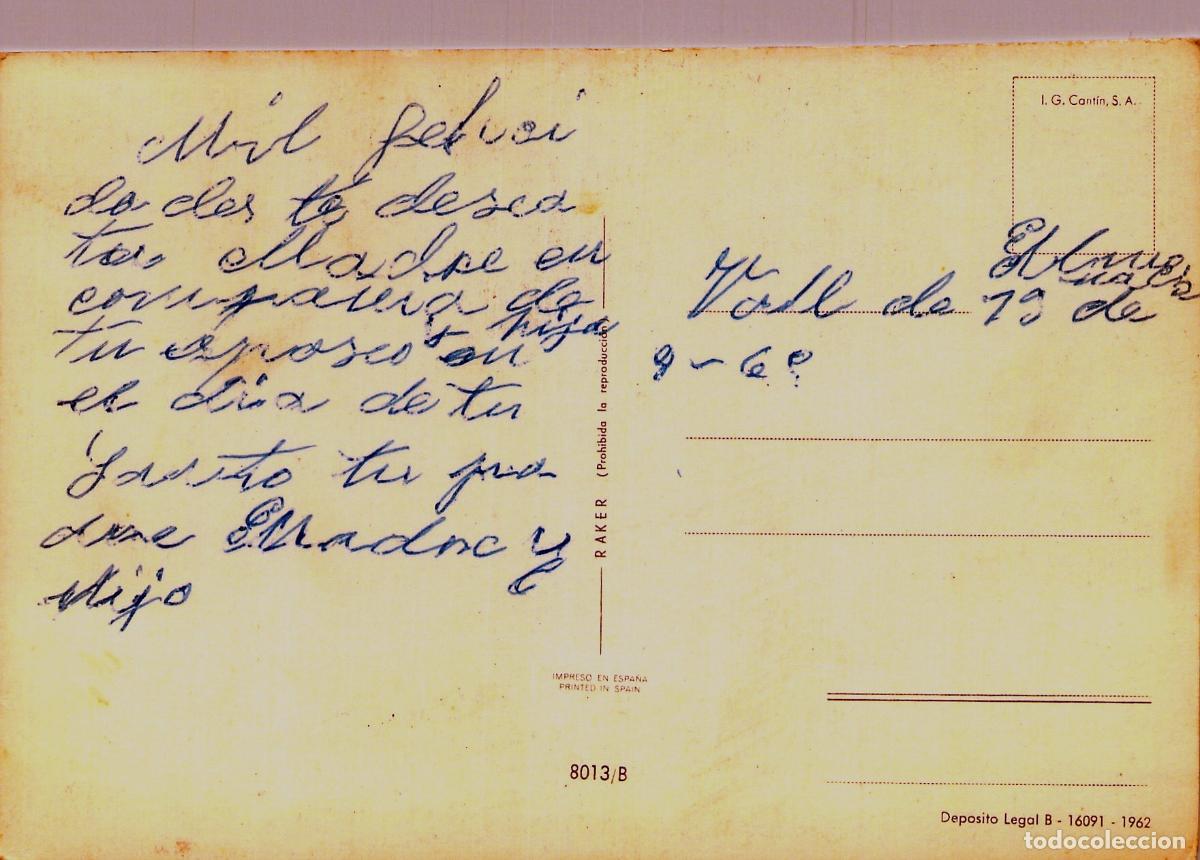 Mil felici
dades te desea
tu Madre en
compania de
y hija
tu esposo en
el dia de tu
Santo tu pa
dre Madre y
Hijo
I. G. Cantín, S. A.
Vall de
19 de
9-6
RAKER (Prohibida la reproducción)
IMPRESO EN ESPAÑA
PRINTED IN SPAIN
8013/B
Deposito Legal B - 16091 - 1962
todocoleccion